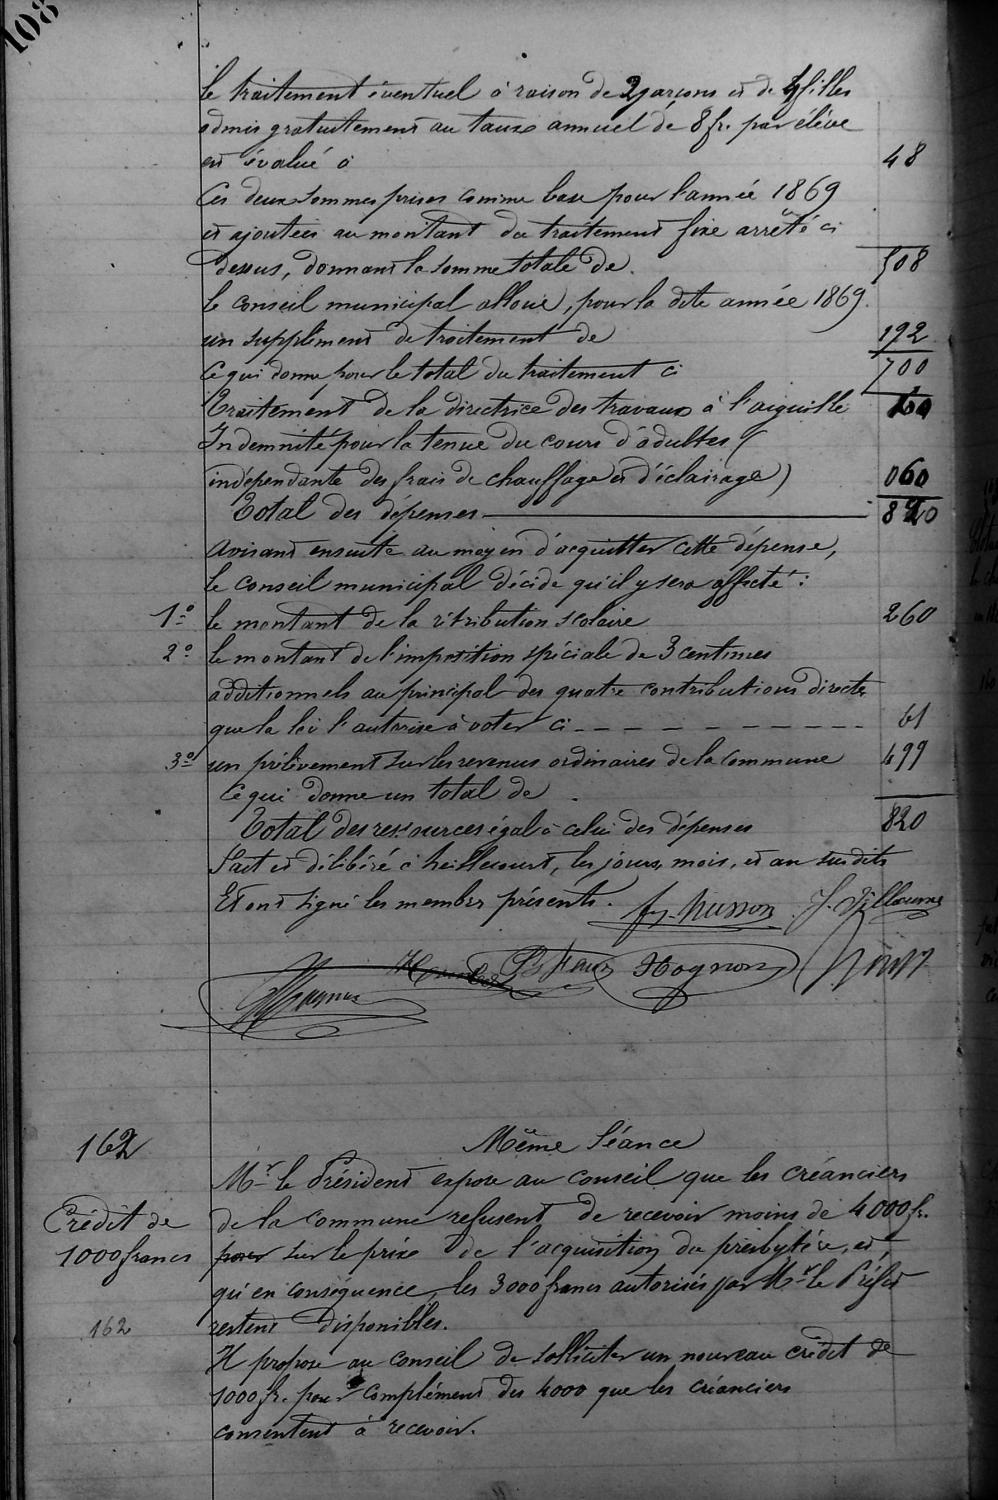 108
le traitement éventuel à raison de 2 garçons et de 4 filles
admis gratuitement au taux annuel de 8 fr. par élève
est évalué à 48
Ces deux sommes prises comme base pour l'année 1869
et ajoutées au montant du traitement fixe arrêté ci
dessus, donnant la somme totale de. 508
le conseil municipal alloue, pour la dite année 1869.
un supplément de traitement de 192
Ce qui donne pour le total du traitement ci 700
Traitement de la directrice des travaux à l'aiguille
Indemnité pour la tenue du cours d'adultes (
indépendante des frais de chauffage et d'éclairage) 060
Total des dépenses 820
Avisant ensuite au moyen d'acquitter cette dépense,
le conseil municipal décide qu'il y sera affecté :
1° le montant de la rétribution scolaire 260
2° le montant de l'imposition spéciale de 3 centimes
additionnels au principal des quatre contributions directes
que la loi l'autorise à voter ci 61
3° un prélèvement sur les revenus ordinaires de la commune 499
Ce qui donne un total de .
Total des ressources égal à celui des dépenses 820
Fait et délibéré à heillecourt, les jours, mois, et an susdits
Et ont signé les membres présents. husson J. Villaume
Hognon
162
Même Séance
Mr le Président expose au conseil que les créanciers
Crédit de
1000 francs
de la commune refusent de recevoir moins de 4000 fr.
pour sur le prix de l'acquisition du presbytère, et
qu'en conséquence, les 3000 francs autorisés par Mr le Préfet
162
restent disponibles.
Il propose au conseil de solliciter un nouveau crédit de
1000 fr. pour complément des 4000 que les créanciers
consentent à recevoir.